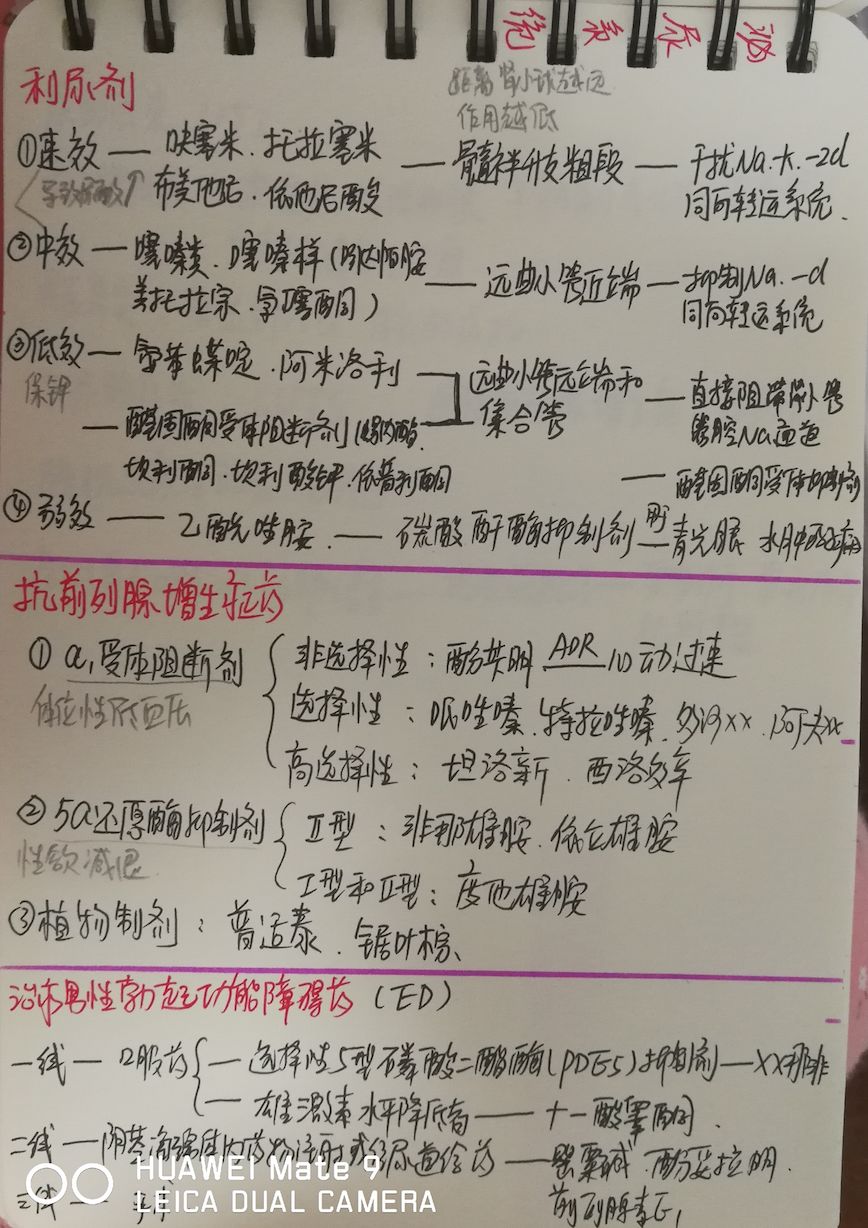 泌尿系统
利尿剂
距离肾小球越远
作用越低
①速效 — 呋塞米、托拉塞米 — 髓袢升支粗段 — 干扰Na.k.-2cl
导致尿酸↑ 布美他尼、依他尼酸 同向转运系统.
②中效 — 噻嗪类、噻嗪样(吲达帕胺 — 远曲小管近端 — 抑制Na.-cl
美托拉宗、氯噻酮) 同向转运系统
③低效 — 氨苯蝶啶、阿米洛利 远曲小管远端和 — 直接阻滞
保钾 集合管 管腔Na通道
— 醛固酮受体阻断剂(螺内酯.
坎利酮、坎利酸钾、依普利酮 — 醛固酮受体抑制剂
④弱效 — 乙酰唑胺. — 碳酸酐酶抑制剂 用 青光眼 水肿
抗前列腺增生症药
①α₁受体阻断剂 非选择性：酚苄明 ADR 心动过速
体位性低血压 选择性：哌唑嗪、特拉唑嗪、多沙xx、阿夫xx
高选择性：坦洛新、西洛多辛
②5α还原酶抑制剂 Ⅱ型：非那雄胺、依立雄胺
性欲减退 Ⅰ型和Ⅱ型：度他雄胺
③植物制剂：普适泰、锯叶棕、
治疗男性勃起功能障碍药（ED）
一线 — 口服药 — 选择性5型磷酸二酯酶(PDE5)抑制剂 — xx那非
— 雄激素水平降低者 — 十一酸睾酮.
二线 — 阴茎海绵体内药物注射或经尿道给药 — 罂粟碱、酚妥拉明.
三线 — 手术 前列腺素E₁
HUAWEI Mate 9
LEICA DUAL CAMERA